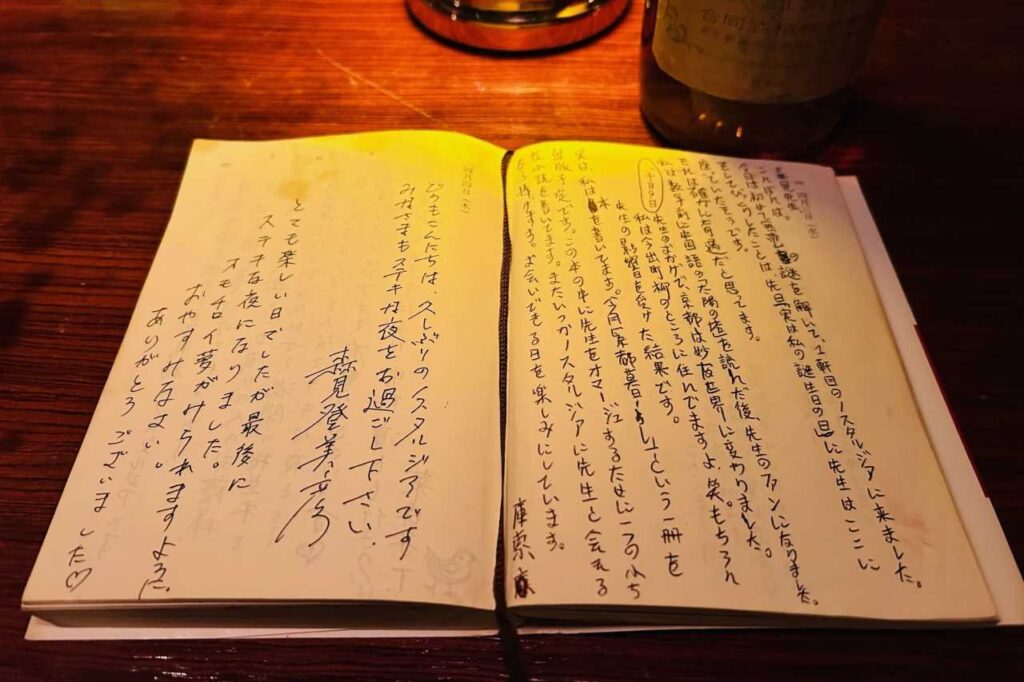 四月 日(金)
森見先生
こんばんは。
今日は初めて の謎を解いて、1軒目のノスタルジアに来ました。
そしてびっくりしたことは先日「実は私の誕生日の日」に先生はここに
座っていたそうです。
それは確かに奇遇だと思ってます。
私は数年前に中国語の太陽の塔を読んだ後、先生のファンになりました。
十月九日
先生のおかげで、京都は妙な世界に変わりました。
私は今出町柳のところに住んでますよ、笑。もちろん
先生の影響を受けた結果です。
実は、私は本を書いてます。今月「京都暮らし」という一冊を
出版予定です。この本の中に先生をオマージュするために一つのみち
な小説を書いてます。またいつかノスタルジアに先生と会える
を待ちます。お会いできる日を楽しみにしています。
庫索
四月四日(木)
どうもこんにちは、久しぶりのノスタルジアです
みなさまもステキな夜をお過ごし下さい
森見登美彦
とても楽しい日でしたが最後に
ステキな夜になりました。
オモチロイ夢がみられますように
おやすみなさい。
ありがとうございました♡
合同酒精株